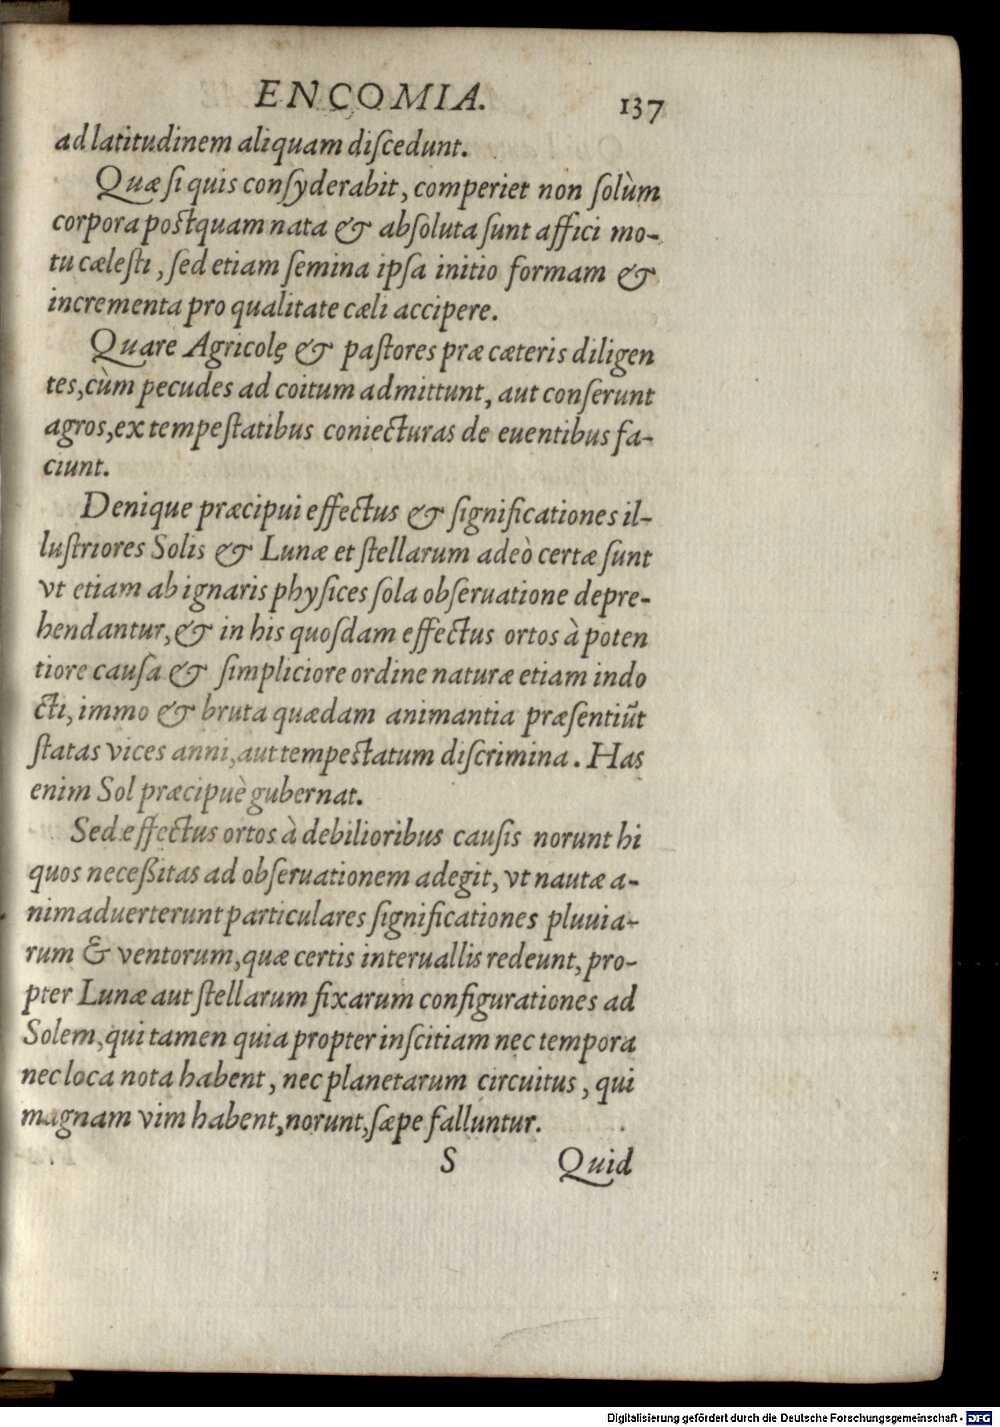 ENCOMIA. 137
ad latitudinem aliquam diſcedunt.
Quæ ſi quis conſyderabit, comperiet non ſolùm
corpora poſtquam nata & abſoluta ſunt affici mo-
tu cæleſti, ſed etiam ſemina ipſa initio formam &
incrementa pro qualitate cæli accipere.
Quare Agricolę & paſtores præ cæteris diligen
tes, cùm pecudes ad coitum admittunt, aut conſerunt
agros, ex tempeſtatibus coniecturas de euentibus fa-
ciunt.
Denique præcipui effectus & ſignificationes il-
luſtriores Solis & Lunæ et ſtellarum adeò certæ ſunt
vt etiam ab ignaris phyſices ſola obſeruatione depre-
hendantur, & in his quoſdam effectus ortos à poten
tiore cauſa & ſimpliciore ordine naturæ etiam indo
cti, immo & bruta quædam animantia præſentiũt
ſtatas vices anni, aut tempeſtatum diſcrimina. Has
enim Sol præcipuè gubernat.
Sed effectus ortos à debilioribus cauſis norunt hi
quos neceßitas ad obſeruationem adegit, vt nautæ a-
nimaduerterunt particulares ſignificationes pluuia-
rum & ventorum, quæ certis interuallis redeunt, pro-
pter Lunæ aut ſtellarum fixarum configurationes ad
Solem, qui tamen quia propter inſcitiam nec tempora
nec loca nota habent, nec planetarum circuitus, qui
magnam vim habent, norunt, ſæpe falluntur.
S Quid
Digitalisierung gefördert durch die Deutsche Forschungsgemeinschaft - DFG